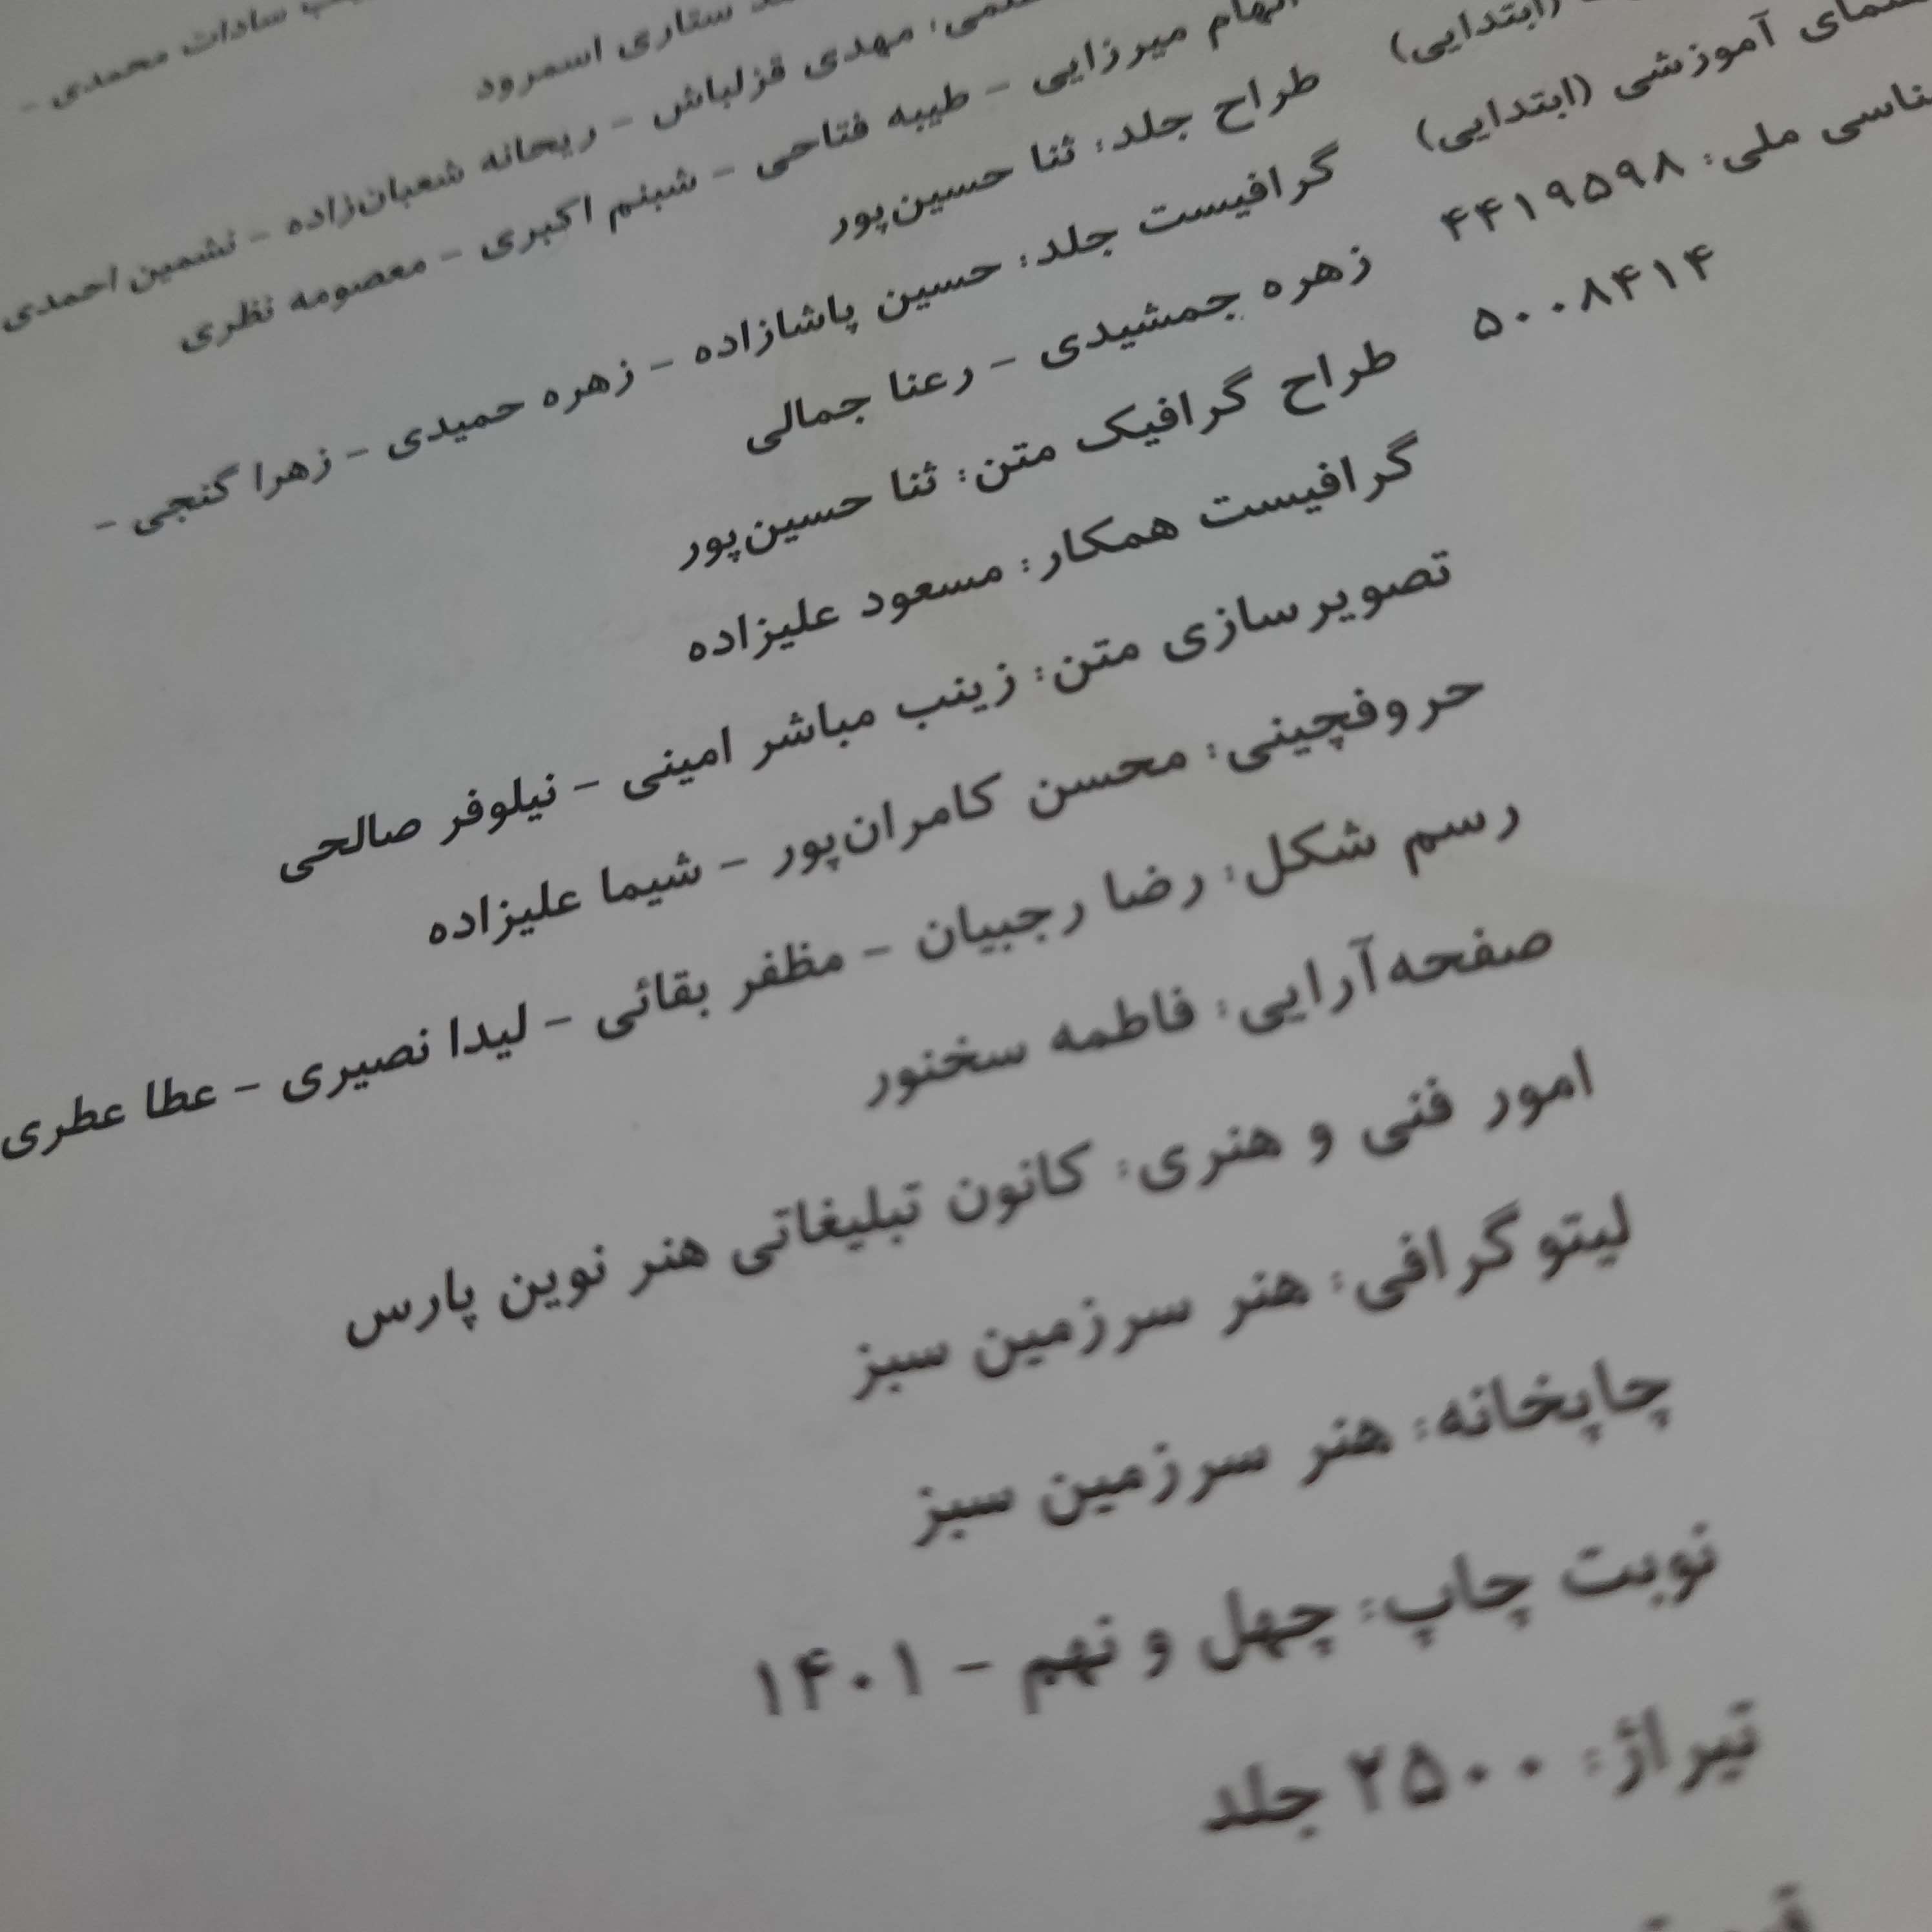 سادات محمدی -
ستاری اسمرود
مهدی قزلباش - ریحانه شعبان‌زاده - نشمین احمدی
الهام میرزایی - طیبه فتاحی - شبنم اکبری - معصومه نظری
(ابتدایی)
طراح جلد: ثنا حسین‌پور
آموزشی (ابتدایی)
گرافیست جلد: حسین پاشازاده - زهره حمیدی - زهرا گنجی -
ملی: ۴۴۱۹۵۹۸
زهره جمشیدی - رعنا جمالی
۵۰۰۸۴۱۴
طراح گرافیک متن: ثنا حسین‌پور
گرافیست همکار: مسعود علیزاده
تصویرسازی متن: زینب مباشر امینی - نیلوفر صالحی
حروفچینی: محسن کامران‌پور - شیما علیزاده
رسم شکل: رضا رجبیان - مظفر بقائی - لیدا نصیری - عطا عطری
صفحه‌آرایی: فاطمه سخنور
امور فنی و هنری: کانون تبلیغاتی هنر نوین پارس
لیتوگرافی: هنر سرزمین سبز
چاپخانه: هنر سرزمین سبز
نوبت چاپ: چهل و نهم - ۱۴۰۱
تیراژ: ۲۵۰۰ جلد